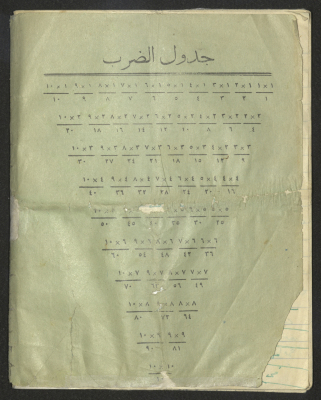 جدول الضرب
١×١ ١×٢ ١×٣ ١×٤ ١×٥ ١×٦ ١×٧ ١×٨ ١×٩ ١×١٠
١ ٢ ٣ ٤ ٥ ٦ ٧ ٨ ٩ ١٠
٢×٢ ٢×٣ ٢×٤ ٢×٥ ٢×٦ ٢×٧ ٢×٨ ٢×٩ ٢×١٠
٤ ٦ ٨ ١٠ ١٢ ١٤ ١٦ ١٨ ٢٠
٣×٣ ٣×٤ ٣×٥ ٣×٦ ٣×٧ ٣×٨ ٣×٩ ٣×١٠
٩ ١٢ ١٥ ١٨ ٢١ ٢٤ ٢٧ ٣٠
٤×٤ ٤×٥ ٤×٦ ٤×٧ ٤×٨ ٤×٩ ٤×١٠
١٦ ٢٠ ٢٤ ٢٨ ٣٢ ٣٦ ٤٠
٥×٥ ٥×٦ ٥×٧ ٥×٨
٢٥ ٣٠ ٣٥ ٤٠ ٤٥ ٥٠
٦×٦ ٦×٧ ٦×٨ ٦×٩ ٦×١٠
٣٦ ٤٢ ٤٨ ٥٤ ٦٠
٧×٧ ٧×٨ ٧×٩ ٧×١٠
٤٩ ٥٦ ٦٣ ٧٠
٨×٨ ٨×٩ ٨×١٠
٦٤ ٧٢ ٨٠
٩×٩ ٩×١٠
٨١ ٩٠
١٠×١٠